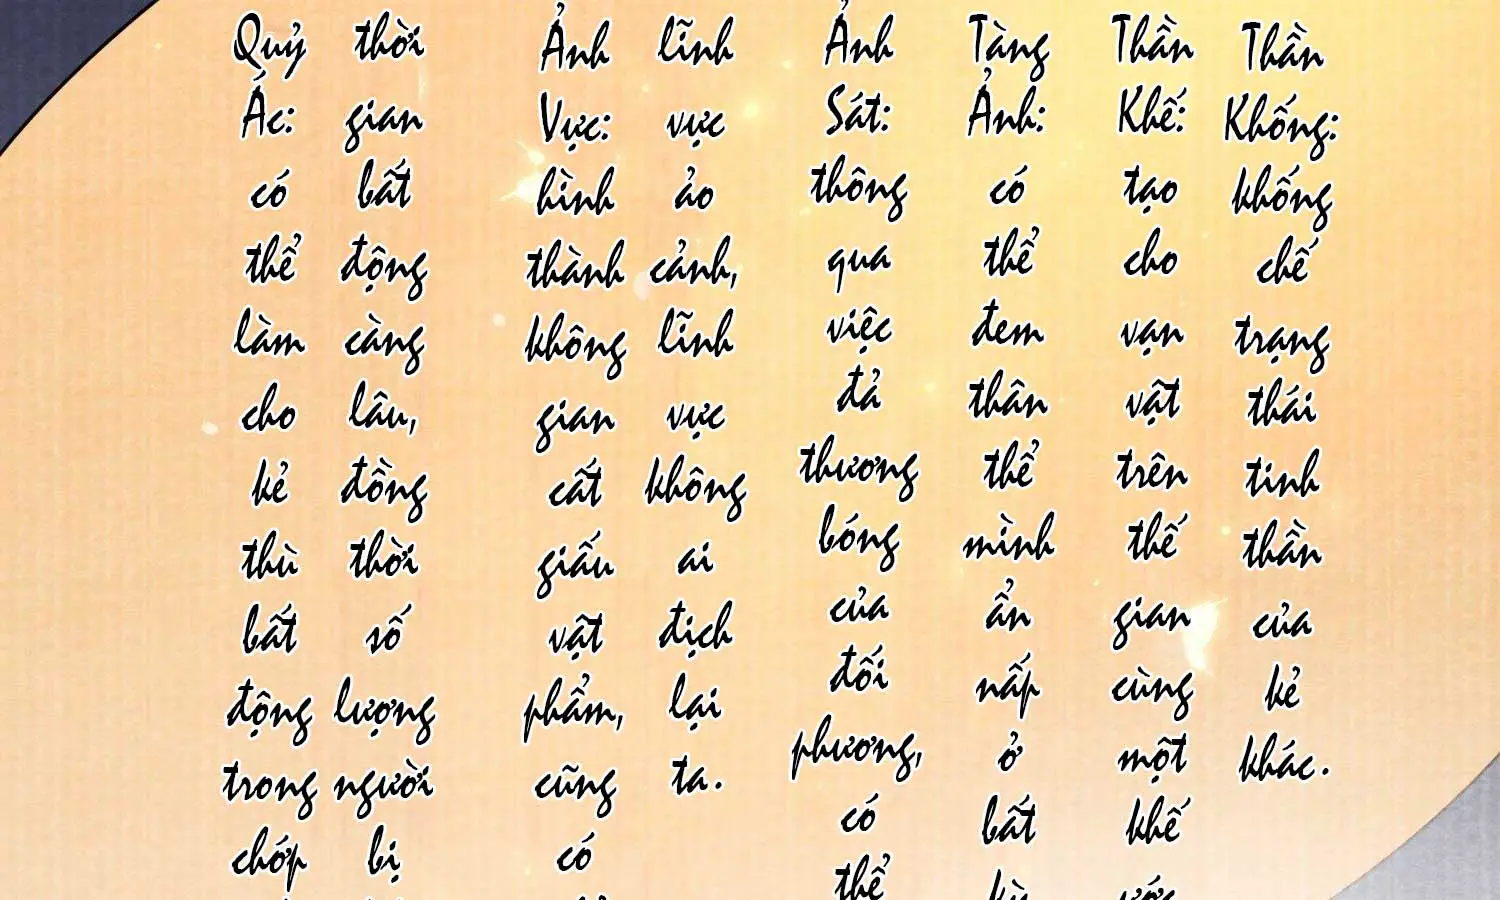 Quỷ Ác: có thể làm cho kẻ thù bất động trong chớp
thời gian bất động càng lâu, đồng thời số lượng người bị
Ảnh Vực: hình thành không gian cất giấu vật phẩm, cũng có
lĩnh vực ảo cảnh, lĩnh vực không ai địch lại ta.
Ảnh Sát: thông qua việc đả thương bóng của đối phương, có thể
Tàng Ảnh: có thể đem thân thể mình ẩn nấp ở bất
Thần Khế: tạo cho vạn vật trên thế gian cùng một khế
Thần Khống: khống chế trạng thái tinh thần của kẻ khác.